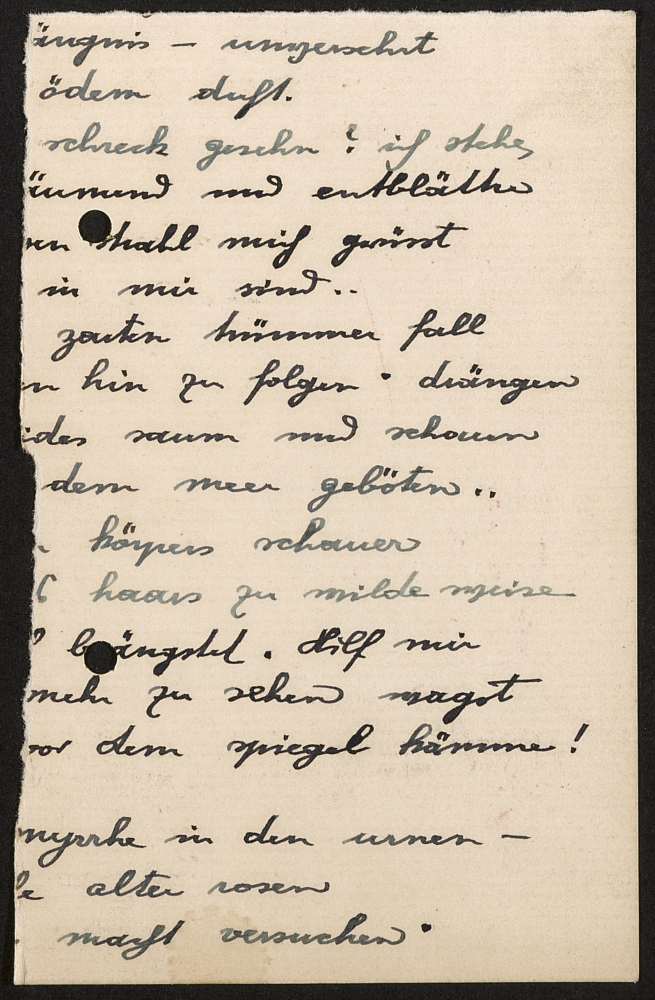 ängnis – unversehrt
ödem duft.
schreck gesehn? ich stehe,
äumend und entblättre
strahl mich grüsst
in mir sind..
zarten trümmer fall
n hin zu folgen · drängen
ides saum und schauen
dem meer geböten..
körpers schauer
haars zu milde weise
beängstet. Hilf mir
mehr zu sehen wagst
vor dem spiegel kämme!
myrrhe in den urnen –
alter rosen
macht versuchen·